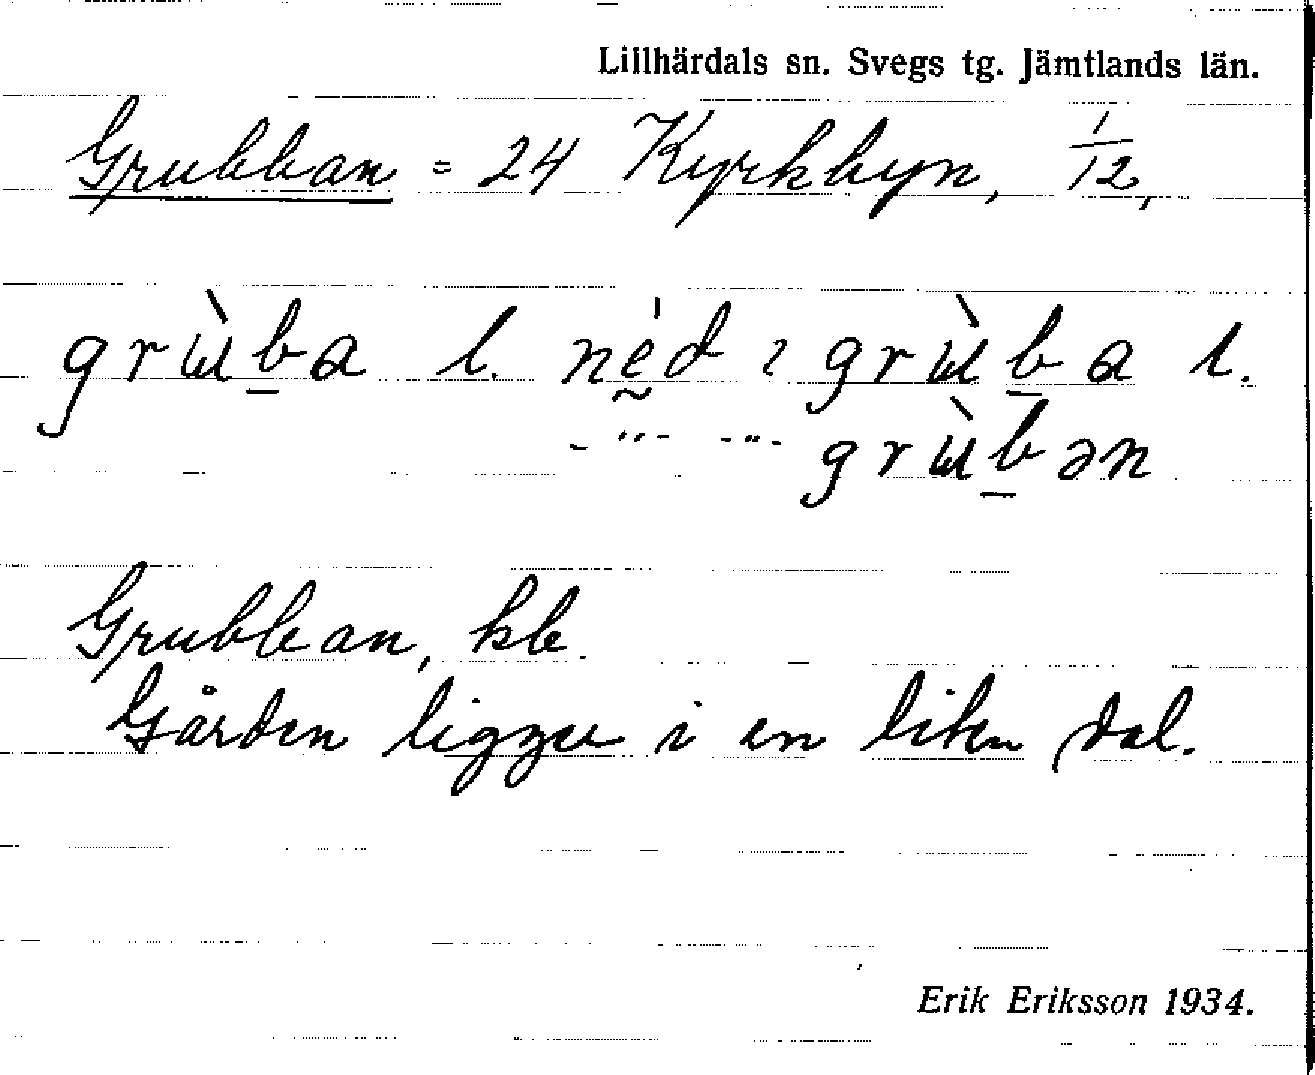 Lillhärdals sn. Svegs tg. Jämtlands län.
Grubban = 24 Kyrkbyn, 1/12,
grɯ̀b̲a l. nḛ̀d ı grɯ̀b̲a l.
-"- -"- grɯ̀b̲ən
Grubban, kb.
Gården ligger i en liten dal.
Erik Eriksson 1934.